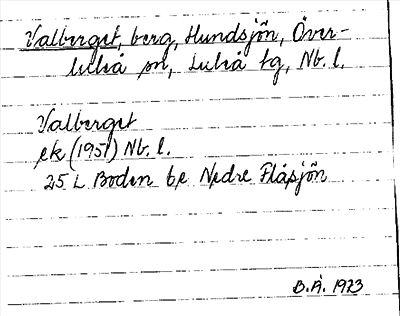 Valberget, berg, Hundsjön, Över-
luleå sn, Luleå tg, Nb. l.
Valberget
ek (1951) Nb. l.
25 L Boden be Nedre Flåsjön
B.Å. 1973